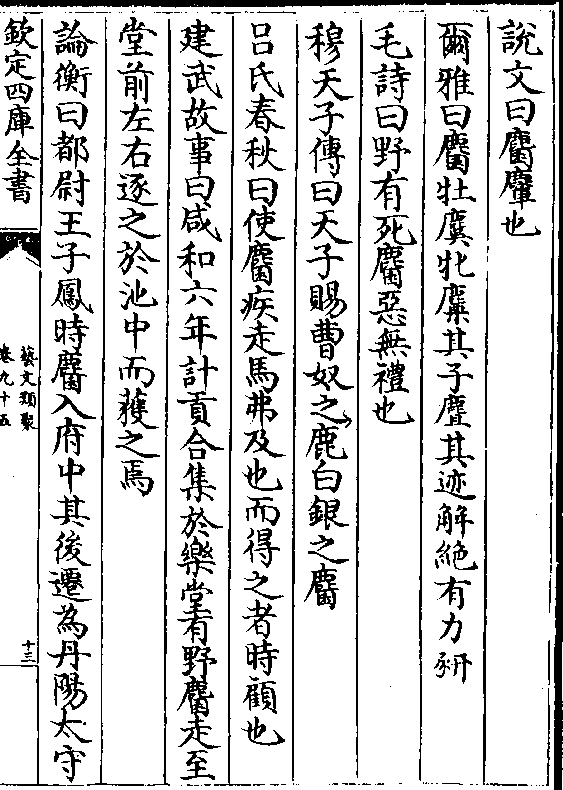 說文曰麕麞也
爾雅曰麕牡麌牝麜其子麆其迹解絕有力豣
毛詩曰野有死麕惡無禮也
穆天子傳曰天子賜曹奴之鹿白銀之麕
呂氏春秋曰使麕疾走馬弗及也而得之者時顧也
建武故事曰咸和六年計貢合集於樂堂有野麕走至
堂前左右逐之於池中而獲之焉
論衡曰都尉王子鳳時麕入府中其後遷為丹陽太守
欽定四庫全書
藝文類聚
卷九十五
十三